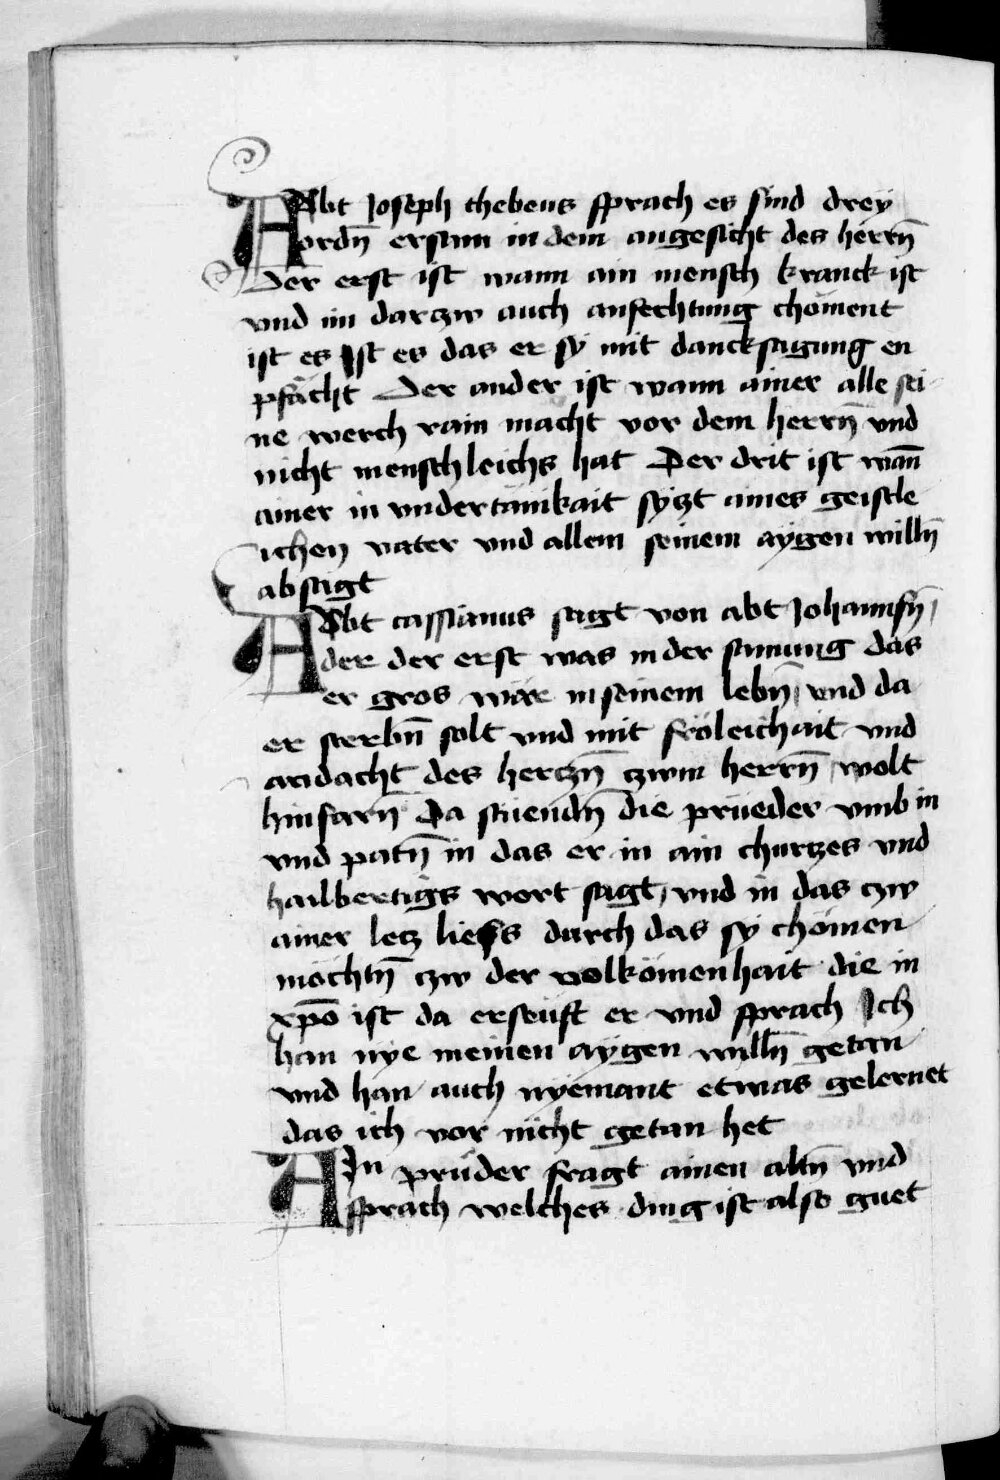 Abt Joseph thebeus sprach es sind drey
ordn̄ ersam in dem angesicht des herrn̄
Der erst ist wann ain mensch kranck ist
vnd im darczw auch anfechtung chöment
ist es Jst es das er sy mit dancksagung en
pfächt Der ander ist wann ainer alle sei-
ne werch rain macht vor dem herrn̄ vnd
nicht menschleichs hat Der drit ist wan̄
ainer in vndertänikait syczt aines geistle
ichen vater vnd allem seinem aygen willn̄
absagt
Abt cassianus sagt von abt Johannsn̄
der der erst was in der samung das
er gros wäre in seinem lebn̄ vnd da
er sterbn̄ solt vnd mit fröleichait vnd
andacht des hertzn̄ czwm herrn̄ wolt
hinfarn̄ Da stuendn̄ die prüeder vmb in
vnd patn̄ in das er in ain churczes vnd
hailbertigs wort sagt vnd in das czw
ainer lecz liess durch das sy chömen
möchtn̄ czw der volkömenhait die in
xp̄o ist da erseuft er vnd sprach Ich
han nye meinen aygen willn̄ getan
vnd han auch nyemant etwas gelernet
das ich vor nicht getan het
AIn prüder fragt ainen altn̄ vnd
sprach welches ding ist also guet